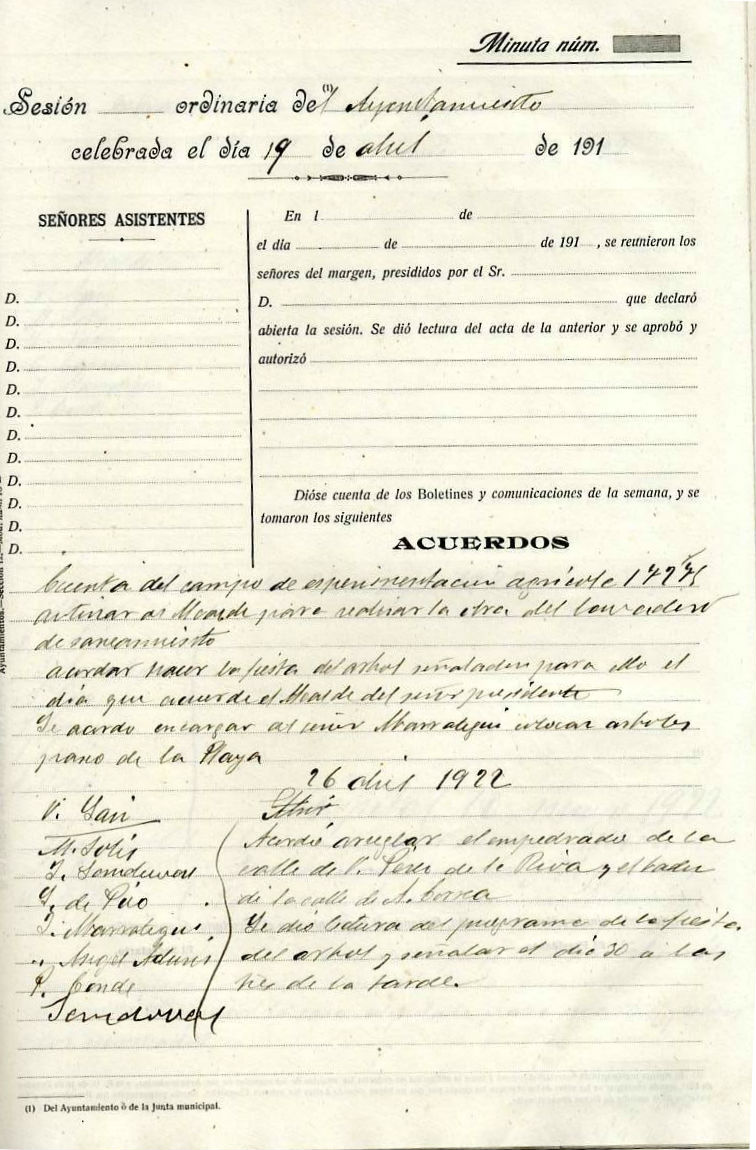 Minuta núm.
Sesión ordinaria del (1) Ayuntamiento
celebrada el día 19 de abril de 191
SEÑORES ASISTENTES
D.
D.
D.
D.
D.
D.
D.
D.
D.
D.
D.
D.
En l de
el día de de 191 , se reunieron los
señores del margen, presididos por el Sr.
D. que declaró
abierta la sesión. Se dió lectura del acta de la anterior y se aprobó y
autorizó
Dióse cuenta de los Boletines y comunicaciones de la semana, y se
tomaron los siguientes
ACUERDOS
Cuenta del campo de esperimentacion agricola
al Alcalde para realizar la obra del lavadero
de saneamiento
acordar hacer la fiesta del arbol señalandose para ello el
día que acuerde el Alcalde del señor presidente
Se acordo encargar al señor Marrategui colocar arboles
paseo de la Playa
26 abril 1922
V. San
M. Solis
J. Sandoval
J. de Pão
J. Marrategui
" Angel
P. Conde
Sandoval
Acordó arreglar el empedrado de la
calle de V. Perez de la Riva y el badén
de la calle de A. Borra
Se dio lectura del programa de la fiesta
del arbol y señalar el dia 30 a las
tres de la tarde.
(1) Del Ayuntamiento ó de la Junta municipal.